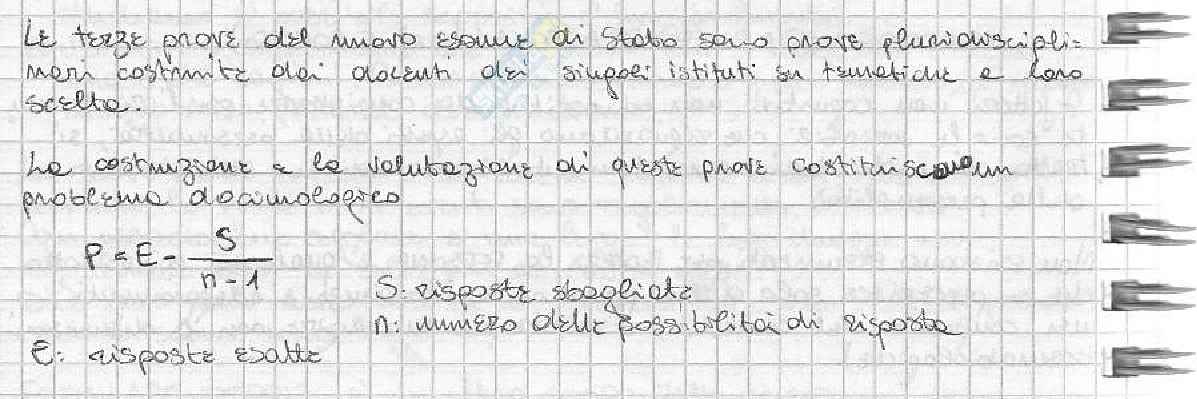 Le terze prove del nuovo esame di Stato sono prove pluridiscipli=
nari costruite dai docenti dei singoli istituti su tematiche a loro
scelta.
La costruzione e la valutazione di queste prove costituiscono un
problema docimologico
P = E - S / (n - 1)
S: risposte sbagliate
n: numero delle possibilità di risposta
E: risposte esatte